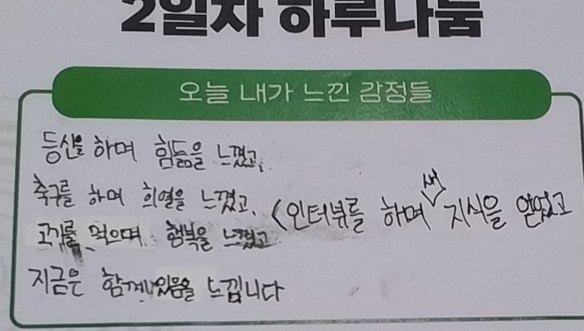 2일차 하루나눔
오늘 내가 느낀 감정들
등산을 하며 힘듦을 느꼈고,
축구를 하며 희열을 느꼈고, <인터뷰를 하며 새 지식을 얻었고
고기를 먹으며 행복을 느꼈고
지금은 함께있음을 느낍니다